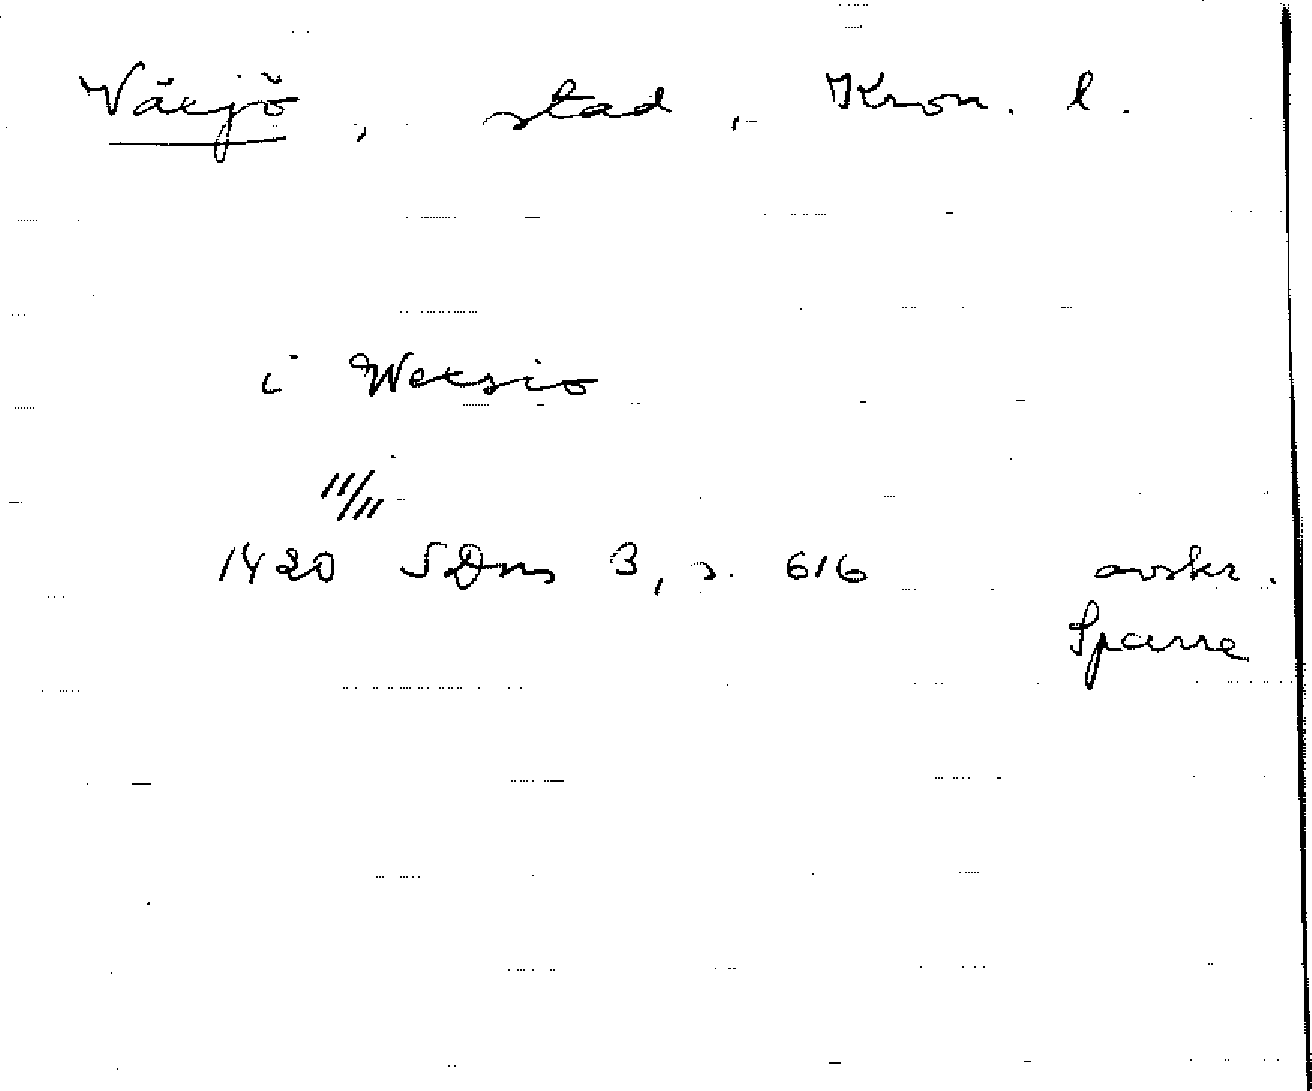 Växjö, stad, Kron. l.
i Wexsio
11/11
1420 SDns 3, s. 616 avskr.
Sparre